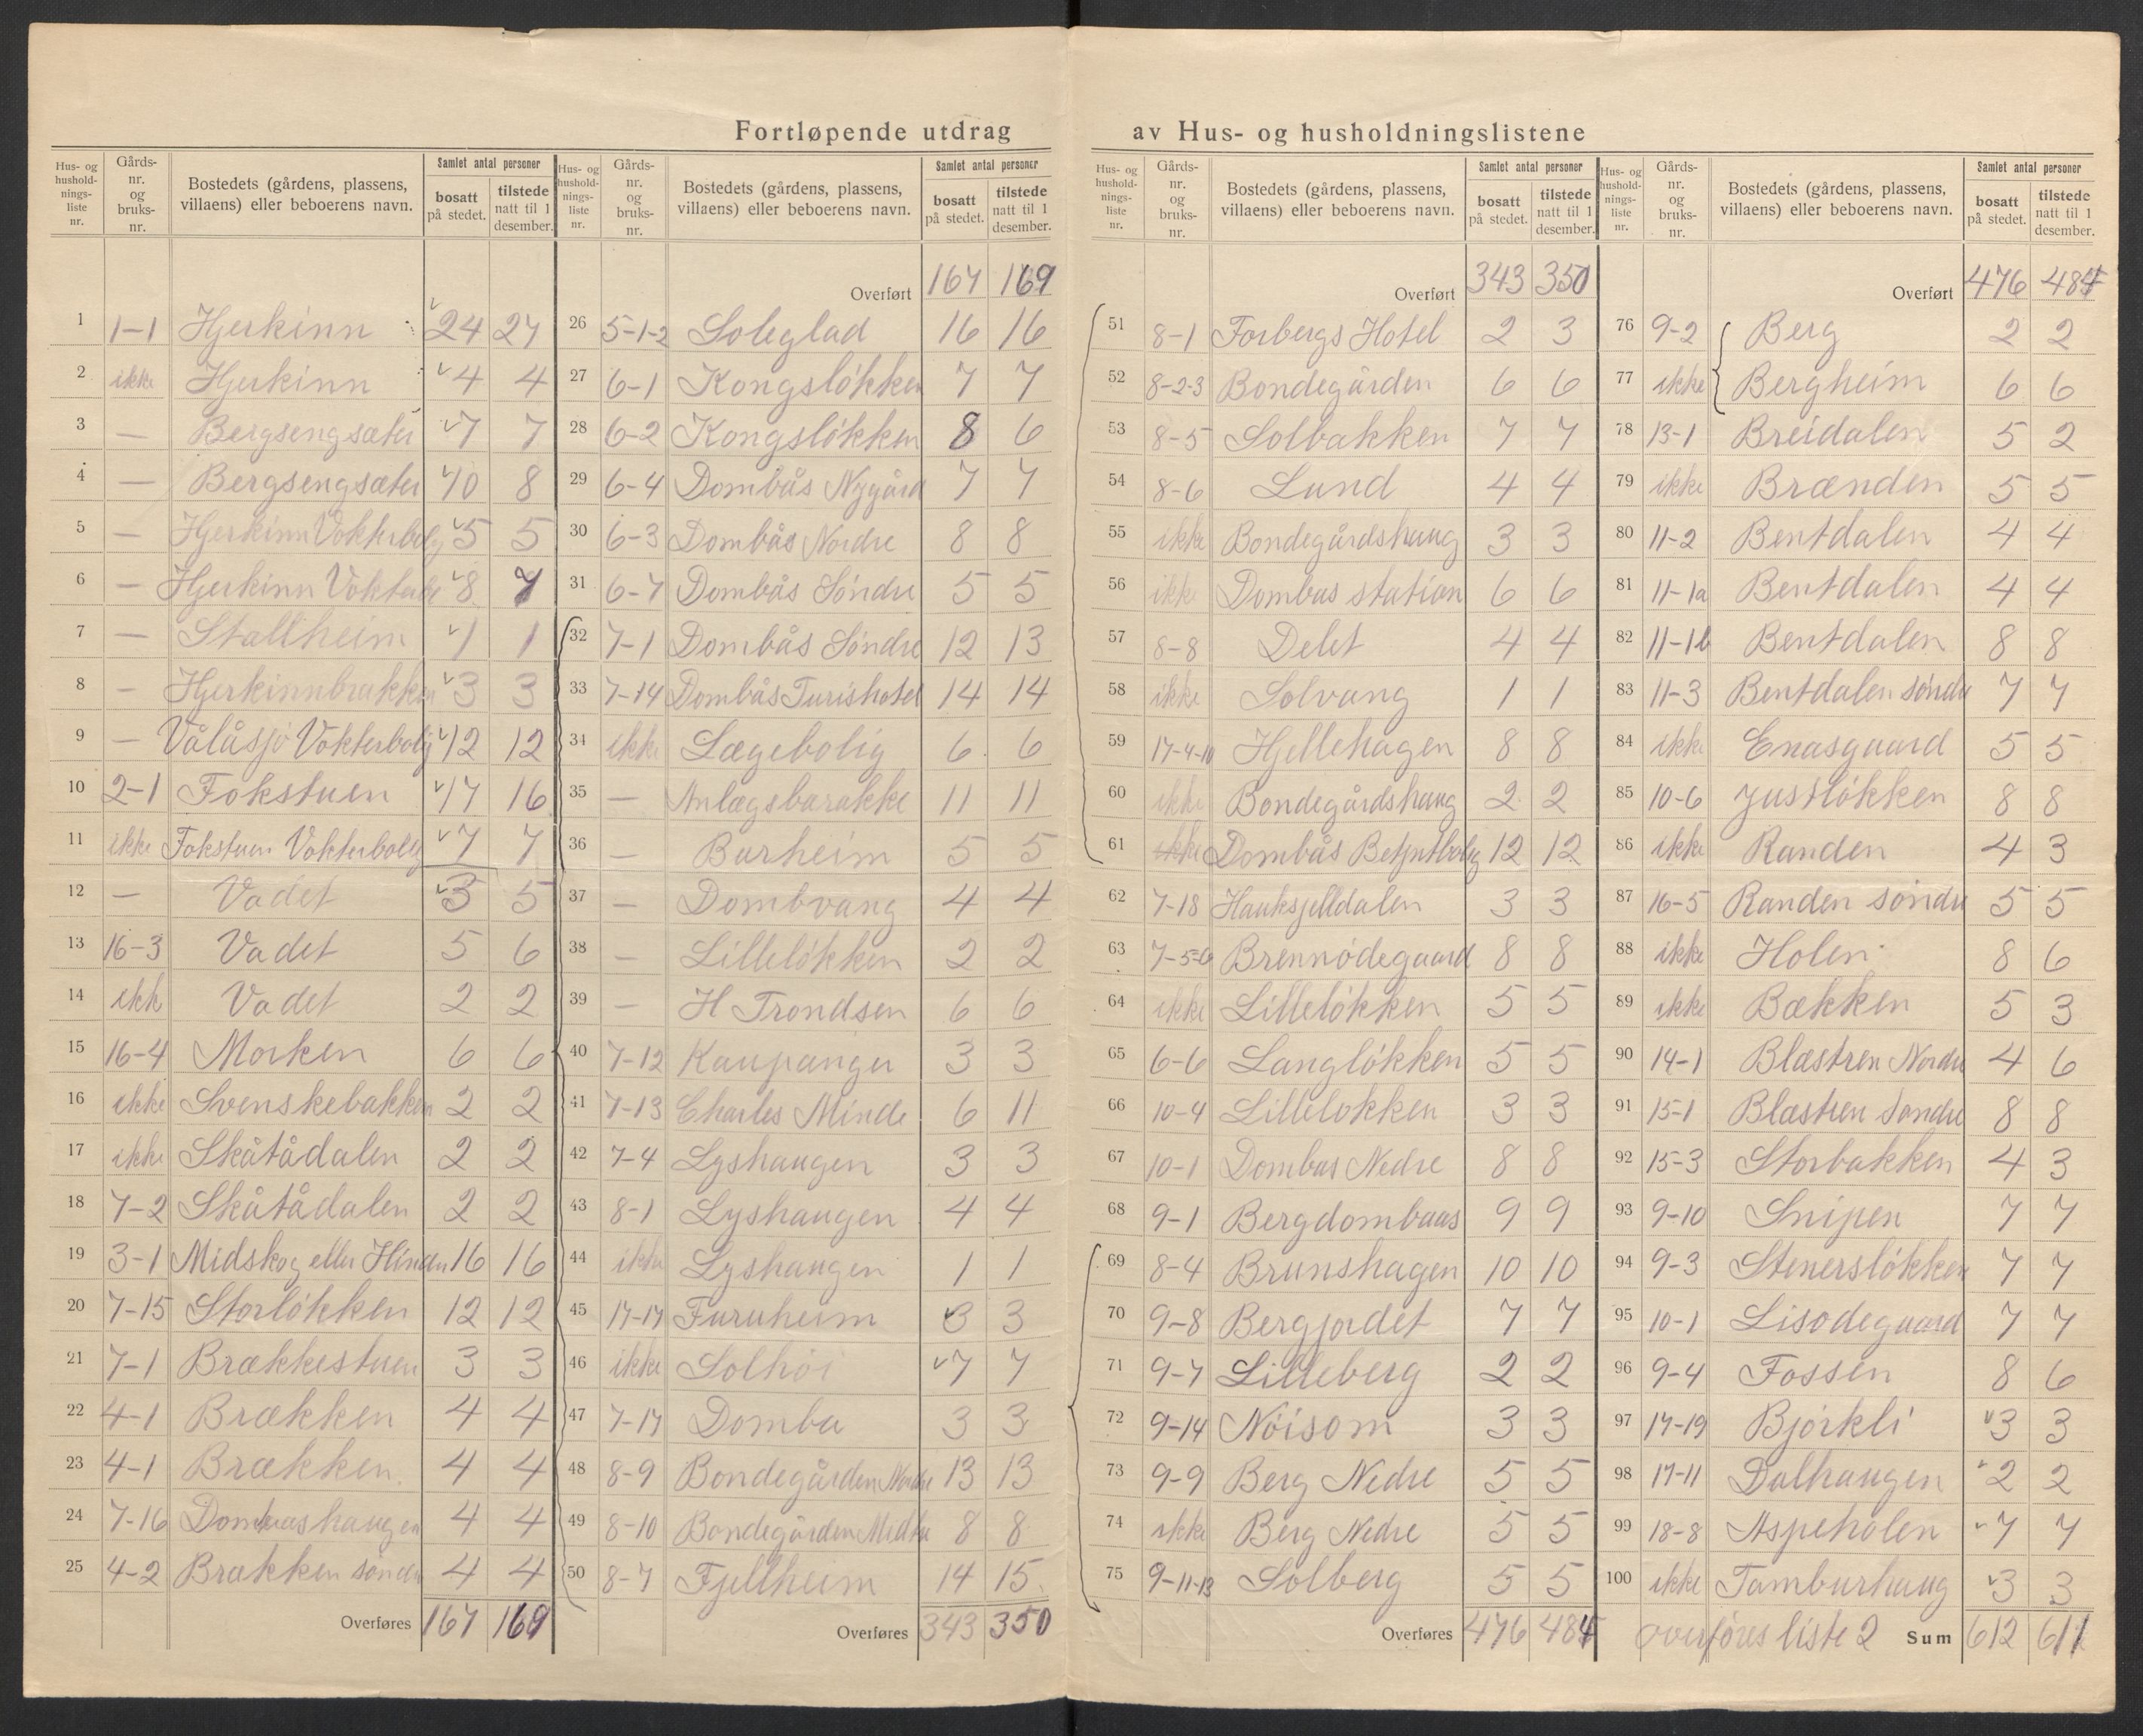 Fortløpende utdrag av Hus- og husholdningslistene
Hus- og husholdnings-liste nr. | Gårds-nr. og bruks-nr. | Bostedets (gårdens, plassens, villaens) eller beboerens navn. | Samlet antal personer bosatt på stedet. | tilstede natt til 1 desember.
1 1-1 Hjerkinn 24 27
2 ikke Hjerkinn 4 4
3 — Bergsengsæter 7 7
4 — Bergsengsæter 10 8
5 — Hjerkinn Vokterbolig 5 5
6 — Hjerkinn Vokterb 8 7
7 — Stallheim 1 1
8 — Hjerkinnbrakken 3 3
9 — Vålåsjø Vokterbolig 12 12
10 2-1 Fokstuen 17 16
11 ikke Fokstuen Vokterbolig 7 7
12 — Vadet 3 5
13 16-3 Vadet 5 6
14 ikk Vadet 2 2
15 16-4 Morken 6 6
16 ikke Svenskebakken 2 2
17 ikke Skåtådalen 2 2
18 7-2 Skåtådalen 2 2
19 3-1 Midskog eller Hinden 16 16
20 7-15 Storløkken 12 12
21 7-1 Brækkestuen 3 3
22 4-1 Brækken 4 4
23 4-1 Brækken 4 4
24 7-16 Dombaashaugen 4 4
25 4-2 Brækken søndre 4 4
Overføres 167 169
Hus- og husholdnings-liste nr. | Gårds-nr. og bruks-nr. | Bostedets (gårdens, plassens, villaens) eller beboerens navn. | Samlet antal personer bosatt på stedet. | tilstede natt til 1 desember.
Overført 167 169
26 5-1-2 Soleglad 16 16
27 6-1 Kongsløkken 7 7
28 6-2 Kongsløkken 8 6
29 6-4 Dombås Nygård 7 7
30 6-3 Dombås Nordre 8 8
31 6-7 Dombås Søndre 5 5
32 7-1 Dombås Søndre 12 13
33 7-14 Dombås Turishotel 14 14
34 ikke Lægebolig 6 6
35 — Anlægsbarakke 11 11
36 — Burheim 5 5
37 — Dombvang 4 4
38 — Lilleløkken 2 2
39 — H Trondsen 6 6
40 7-12 Kaupanger 3 3
41 7-13 Charles Minde 6 11
42 7-4 Lyshaugen 3 3
43 8-1 Lyshaugen 4 4
44 ikke Lyshaugen 1 1
45 17-17 Furuheim 3 3
46 ikke Solhøi 7 7
47 7-17 Domba 3 3
48 8-9 Bondegården Nordre 13 13
49 8-10 Bondegården 8 8
50 8-7 Fjellheim 14 15
Overføres 343 350
Hus- og husholdnings-liste nr. | Gårds-nr. og bruks-nr. | Bostedets (gårdens, plassens, villaens) eller beboerens navn. | Samlet antal personer bosatt på stedet. | tilstede natt til 1 desember.
Overført 343 350
51 8-1 Forbergs Hotel 2 3
52 8-2-3 Bondegården 6 6
53 8-5 Solbakken 7 7
54 8-6 Lund 4 4
55 ikke Bondegårdshaug 3 3
56 ikke Dombas station 6 6
57 8-8 Delet 4 4
58 ikke Solvang 1 1
59 17-4-10 Hjellehagen 8 8
60 ikke Bondegårdshaug 2 2
61 ikke Dombås Betjntbolig 12 12
62 7-18 Hauksjelldalen 3 3
63 7-5-6 Brennødegaard 8 8
64 ikke Lilleløkken 5 5
65 6-6 Langløkken 5 5
66 10-4 Lilleløkken 3 3
67 10-1 Dombas Nedre 8 8
68 9-1 Bergdombaas 9 9
69 8-4 Brunshagen 10 10
70 9-8 Bergjordet 7 7
71 9-7 Lilleberg 2 2
72 9-14 Nøisom 3 3
73 9-9 Berg Nedre 5 5
74 ikke Berg Nedre 5 5
75 9-11-13 Solberg 5 5
Overføres 476 484
Hus- og husholdnings-liste nr. | Gårds-nr. og bruks-nr. | Bostedets (gårdens, plassens, villaens) eller beboerens navn. | Samlet antal personer bosatt på stedet. | tilstede natt til 1 desember.
Overført 476 484
76 9-2 Berg 2 2
77 ikke Bergheim 6 6
78 13-1 Breidalen 5 2
79 ikke Brænden 5 5
80 11-2 Bentdalen 4 4
81 11-1a Bentdalen 4 4
82 11-1b Bentdalen 8 8
83 11-3 Bentdalen søndre 7 7
84 ikke Enasgaard 5 5
85 10-6 Justløkken 8 8
86 ikke Randen 4 3
87 16-5 Randen søndre 5 5
88 ikke Holen 8 6
89 ikke Bækken 5 3
90 14-1 Blæstren Nordre 4 6
91 15-1 Blæstren Søndre 8 8
92 15-3 Storbakken 4 3
93 9-10 Snipen 7 7
94 9-3 Stenersløkken 7 7
95 10-1 Lisødegaard 7 7
96 9-4 Fossen 8 6
97 17-19 Bjørkli 3 3
98 17-11 Dalhaugen 2 2
99 18-8 Aspeholen 7 7
100 ikke Tamburhaug 3 3
overføres liste 2 Sum 612 611